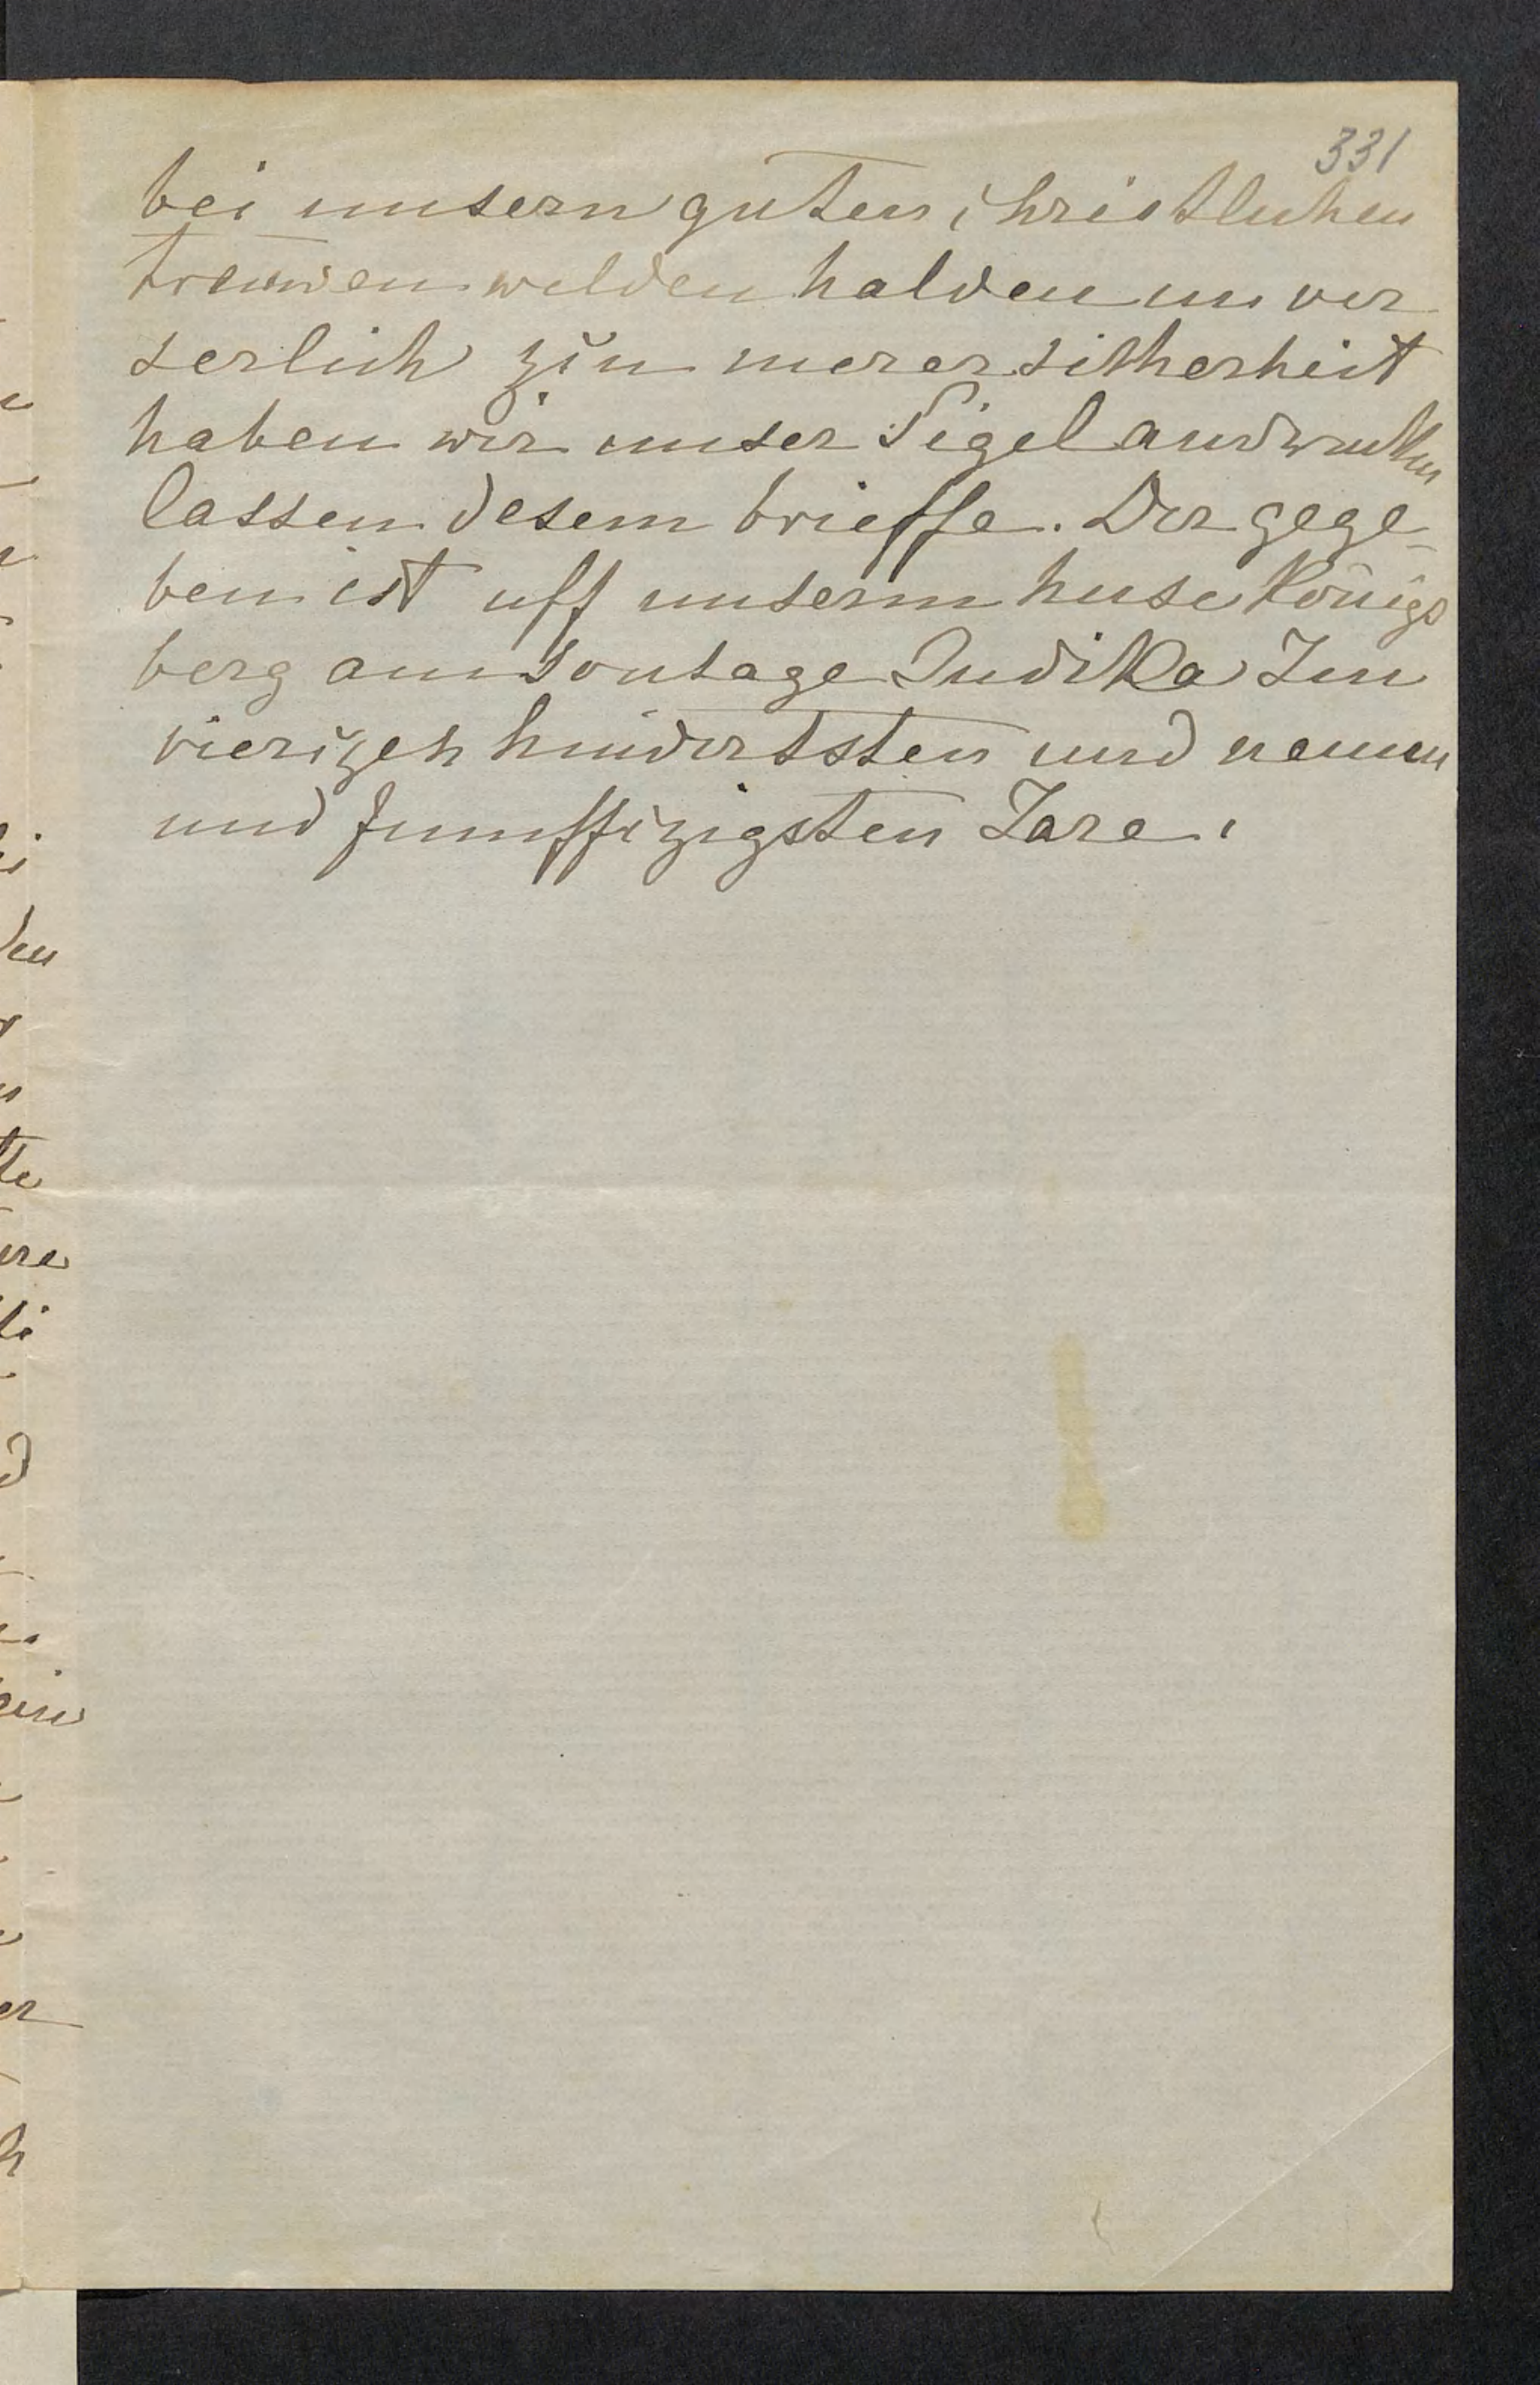 331
bei unsern guten christlichen
treuwen welden halden unver
serlich zu merer sicherheit
haben wir unser Sigel andrucken
lassen desem brieffe. Der gege-
ben ist uff unserm huse Königs
berg am Sontage Judika Im
vierizehhundertsten und neuen
und funffizigsten Jare.